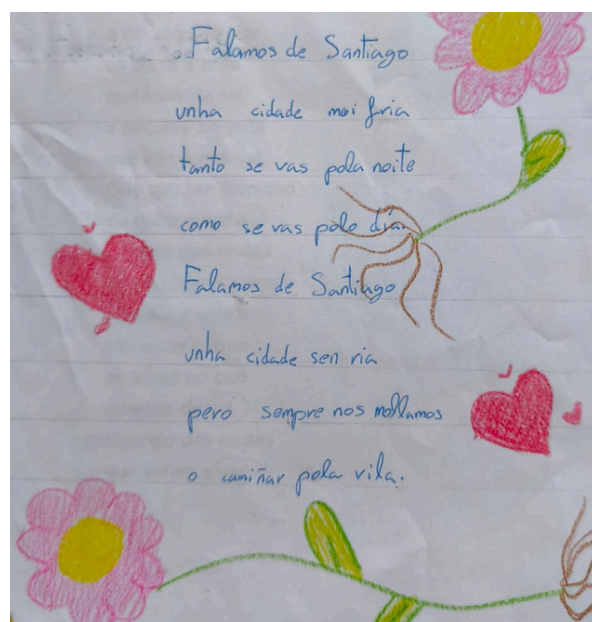 Falamos de Santiago
unha cidade moi fria
tanto se vas pola noite
como se vas polo día.
Falamos de Santiago
unha cidade sen ria
pero sempre nos mollamos
o camiñar pola vila.